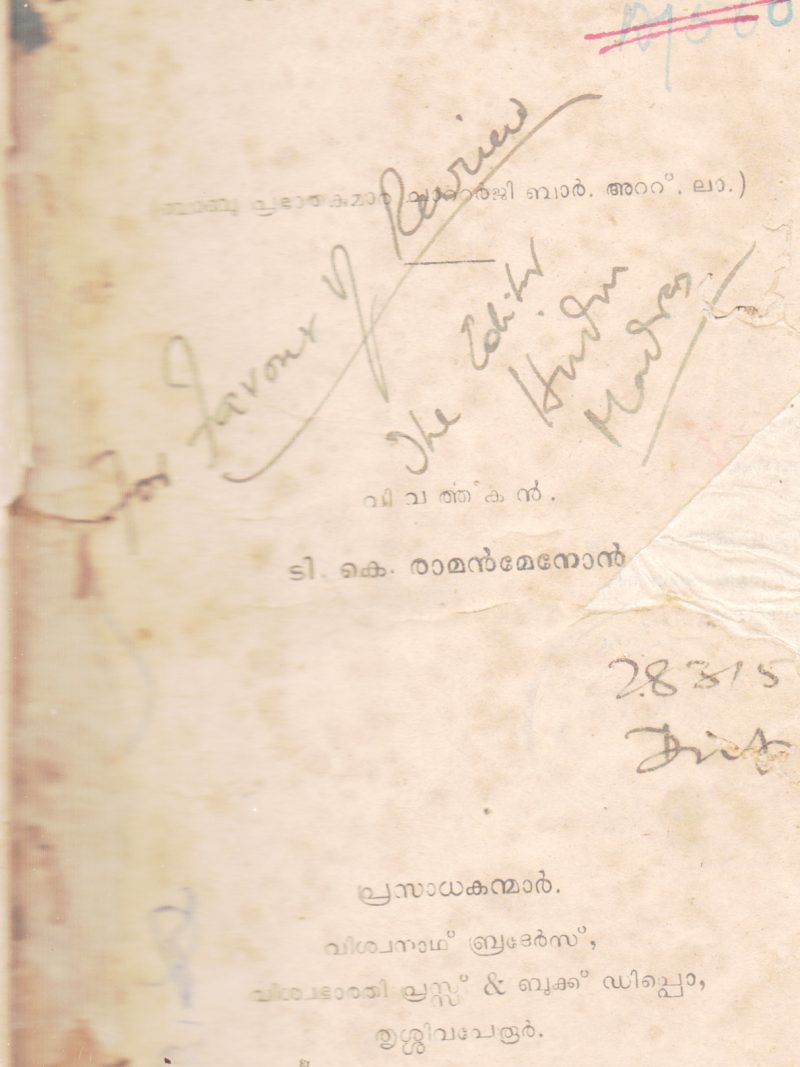 (ബാബു പ്രഭാതകുമാര ചാററർജി ബാർ. അററ്. ലാ.)
For Favour of Review
The Editor
Hindu
Madras
വിവൎത്തകൻ.
ടി. കെ. രാമൻമേനോൻ
28315
പ്രസാധകന്മാർ.
വിശ്വനാഥ് ബ്രദേർസ്,
വിശ്വഭാരതി പ്രസ്സ് & ബുക്ക് ഡിപ്പൊ,
തൃശ്ശിവപേരൂർ.